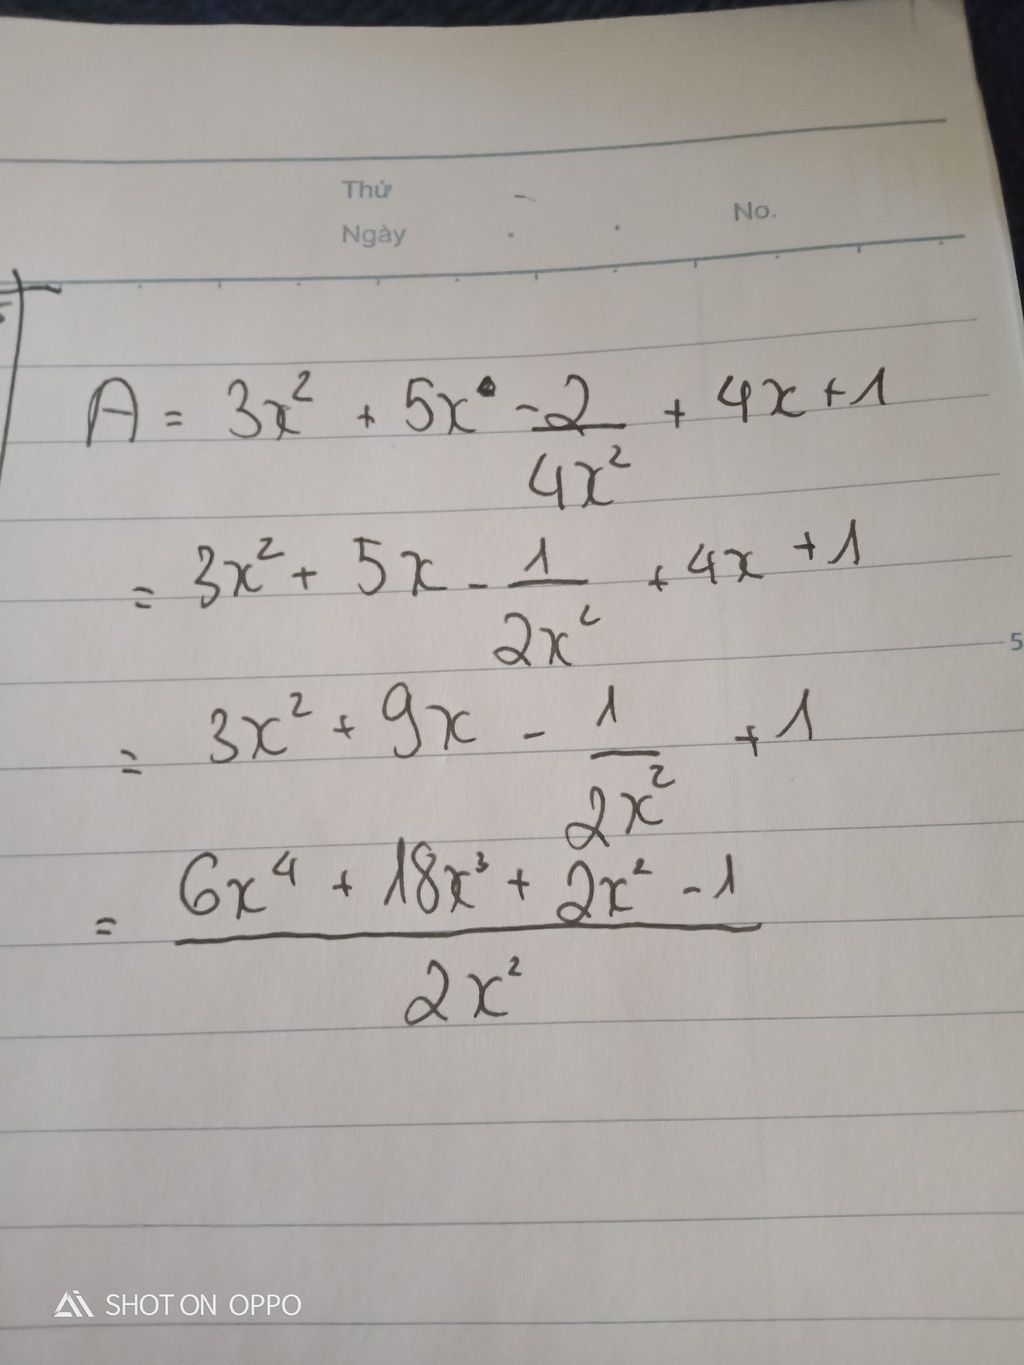 Thứ
Ngày
No.
A = 3x² + 5x - 2/4x² + 4x + 1
= 3x² + 5x - 1/2x² + 4x + 1
5
= 3x² + 9x - 1/2x² + 1
= 6x⁴ + 18x³ + 2x² - 1/2x²
SHOT ON OPPO